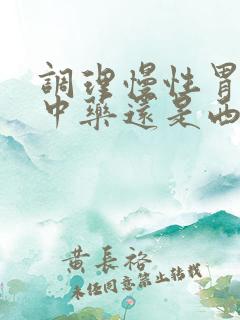 調理慢性胃
中藥還是西
黃長裕
未經同意禁止転載